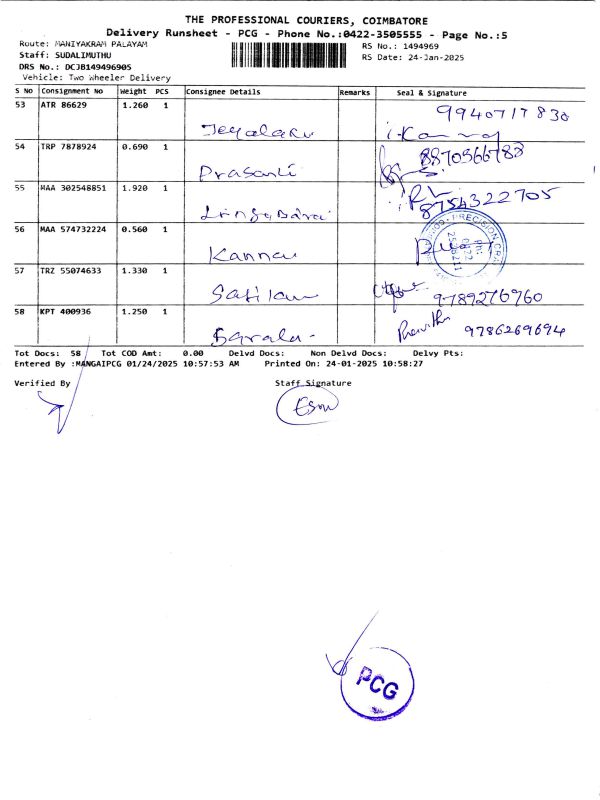 THE PROFESSIONAL COURIERS, COIMBATORE
Delivery Runsheet - PCG - Phone No.:0422-3505555 - Page No.:5
Route: MANIYAKRAM PALAYAM
RS No.: 1494969
Staff: SUDALIMUTHU
RS Date: 24-Jan-2025
DRS No.: DCJB149496905
Vehicle: Two Wheeler Delivery
S No Consignment No Weight PCS Consignee Details Remarks Seal & Signature
53 ATR 86629 1.260 1 9940717830
54 TRP 7878924 0.690 1 Prasanti 8870566788
55 MAA 302548851 1.920 1 8754322705
56 MAA 574732224 0.560 1 Kannan
57 TRZ 55074633 1.330 1 9789276960
58 KPT 400936 1.250 1 9786269694
Tot Docs: 58 Tot COD Amt: 0.00 Delvd Docs: Non Delvd Docs: Delvy Pts:
Entered By :MANGAIPCG 01/24/2025 10:57:53 AM Printed On: 24-01-2025 10:58:27
Verified By Staff Signature
PCG